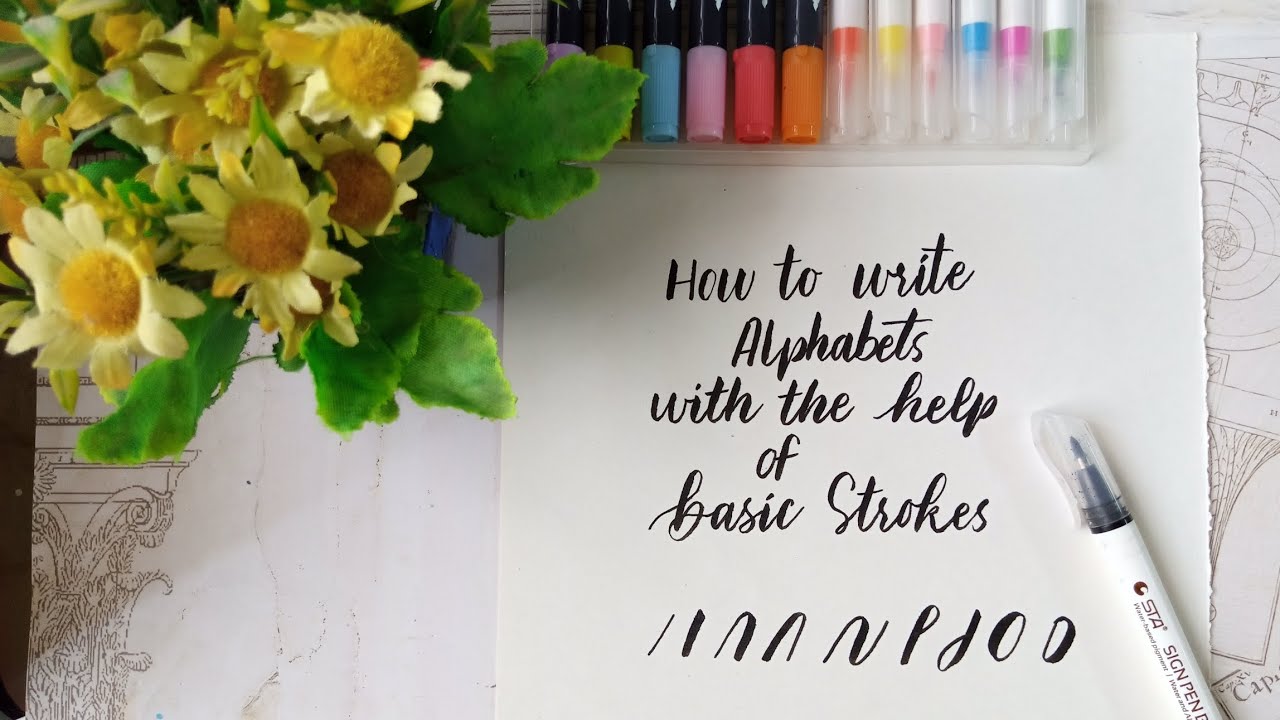 How to write
Alphabets
with the help
of
basic Strokes
STA® SIGN PEN
Water-based pigment / Water and
Cap